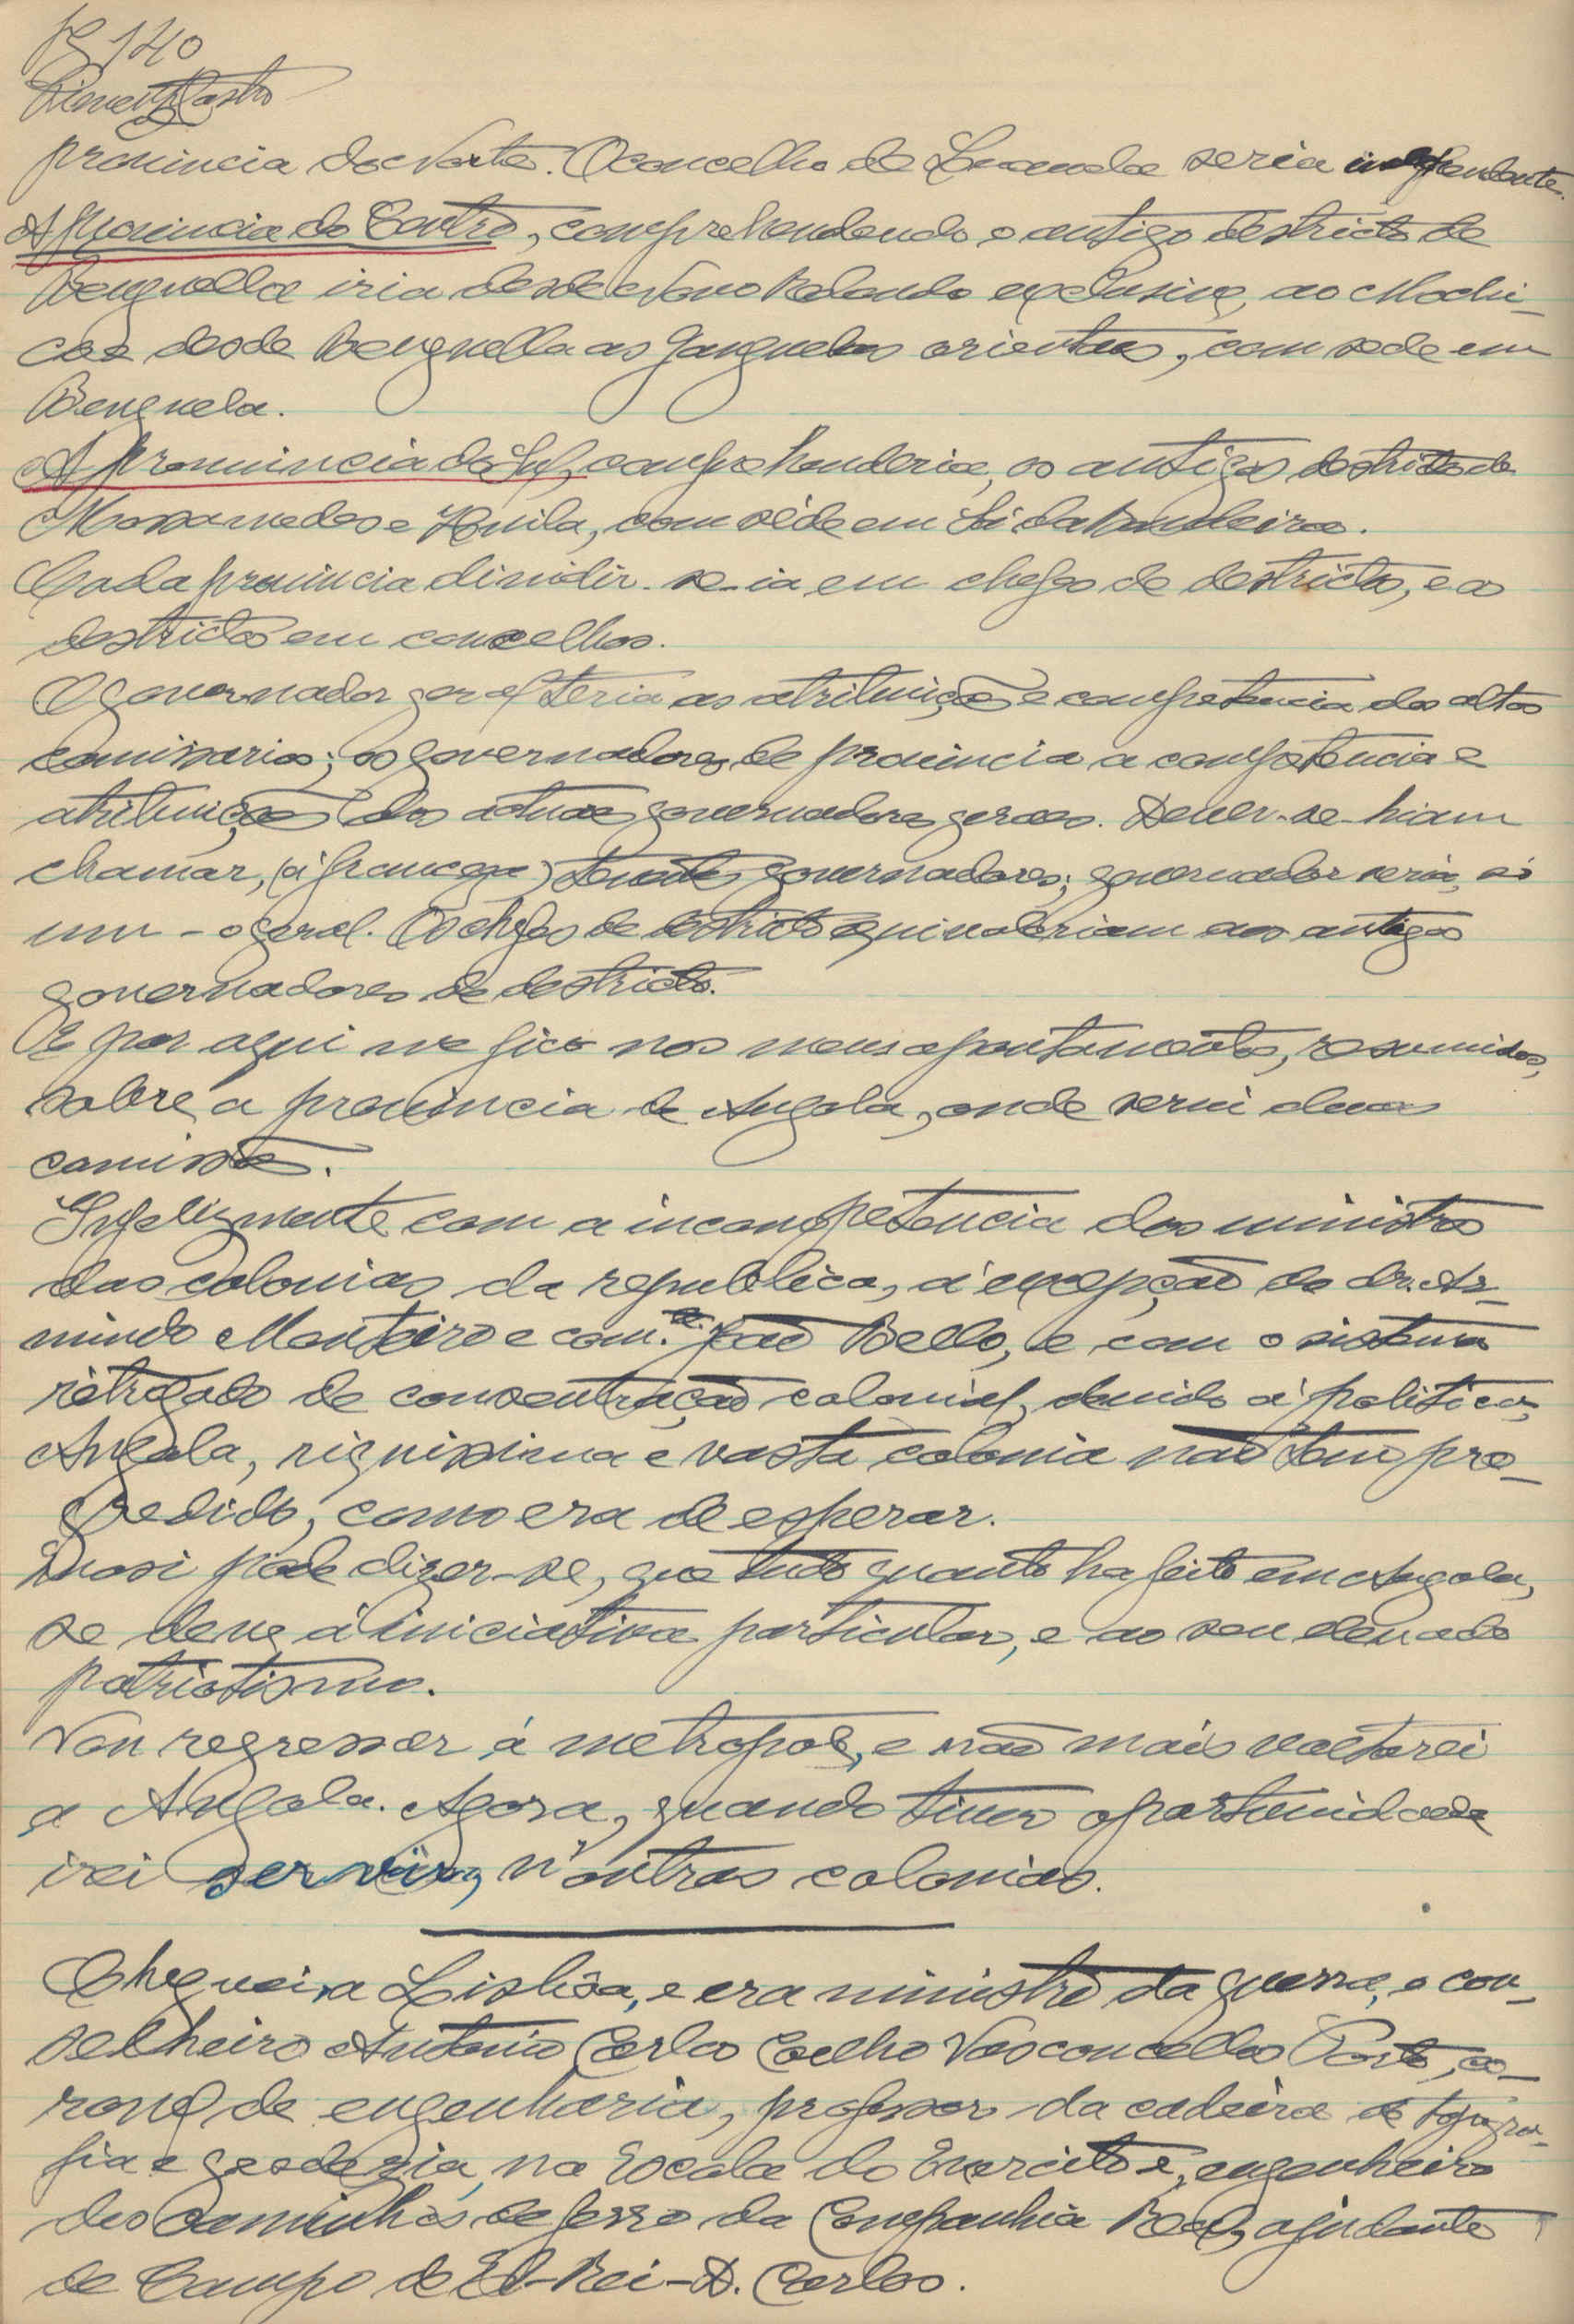 140
provincia do Norte. O concelho de Loanda seria independente.
A provincia do Centro, comprehendendo o antigo destricto de
Benguella iria desde Novo Redondo exclusivé, ao Mochi-
co e desde Benguella as Ganguelas orientaes, com sede em
Benguela.
A prouvincia do Sul, comprehenderia, os antigos destrictos de
Mossamedes e Huila, com séde em Sá da Bandeira.
Cada provincia dividir-se-ia em chefes de destricto, e os
destrictos em concelhos.
O governador geral teria as atribuições e competencia dos altos
comissarios; os governadores de provincia a competencia e
atribuições dos actuaes governadores geraes. Dever-se-hiam
chamar, (á franceza) tenente governadores; governador seria, só
um - o geral. Os chefes de destricto equivaleriam aos antigos
governadores de destricto.
E por aqui me fico nos meus apontamentos, resumidos,
sobre a provincia de Angola, onde servi duas
comissões.
Infelizmente com a incompetencia dos ministros
das colonias da republica, á excepção do dr. Ar-
mindo Monteiro e com.te João Bello, e com o sistema
rétrogado de consentração colonial, devido á politica,
Angola, riquissima e vasta colonia não tem pro-
gredido, como era de esperar.
Quasi pode dizer-se, que tudo quanto ha feito em Angola,
se deve á iniciativa particular, e ao seu elevado
patriotismo.
Vou regressar á metropole, e não máis voltarei
a Angola. Agora, quando tiver oportunidade
irei servir, n'outras colonias.
Cheguei, a Lisbôa, e era ministro da guerra, o con-
selheiro Antonio Carlos Coelho Vasconcellos Porto, co-
ronel de engenharia, professor da cadeira de topogra-
fia e geodezia, na Escola do Exercito e, engenheiro
dos caminhos de ferro da Companhia Real, ajudante
de Campo de El-Rei-D. Carlos.